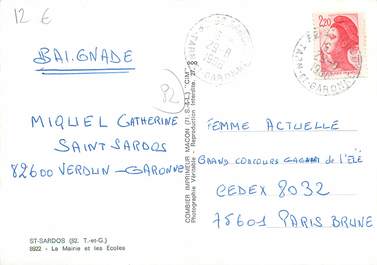 12 €
BAIGNADE
92
MIQUEL CATHERINE
SAINT SARDOS
82600 VERDUN-GARONNE
ST-SARDOS (82. T.-et-G.)
8922 - La Mairie et les Ecoles
COMBIER IMPRIMEUR MACON (71. S.-&-L.) "CIM"
Photographie Véritable - Reproduction Interdite
TARN-ET-GARONNE
2,20
FEMME ACTUELLE
GRAND CONCOURS GAGAMI de L'ÉTÉ
CEDEX 8032
75601 PARIS BRUNE